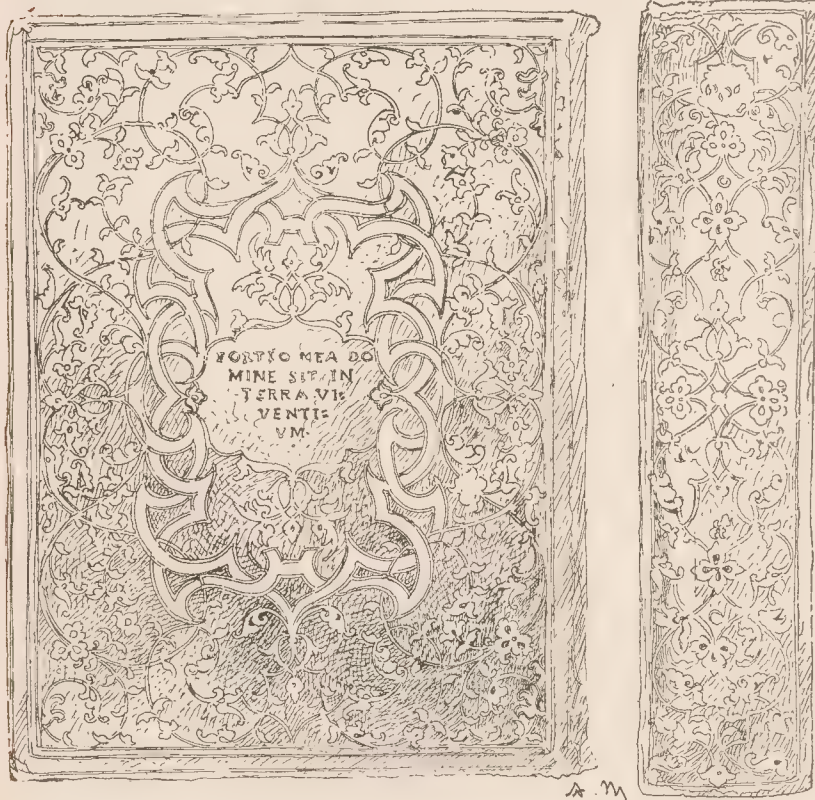 PORTIO MEA DO
MINE SIT IN
TERRA VI:
VENTI:
VM·
A. M